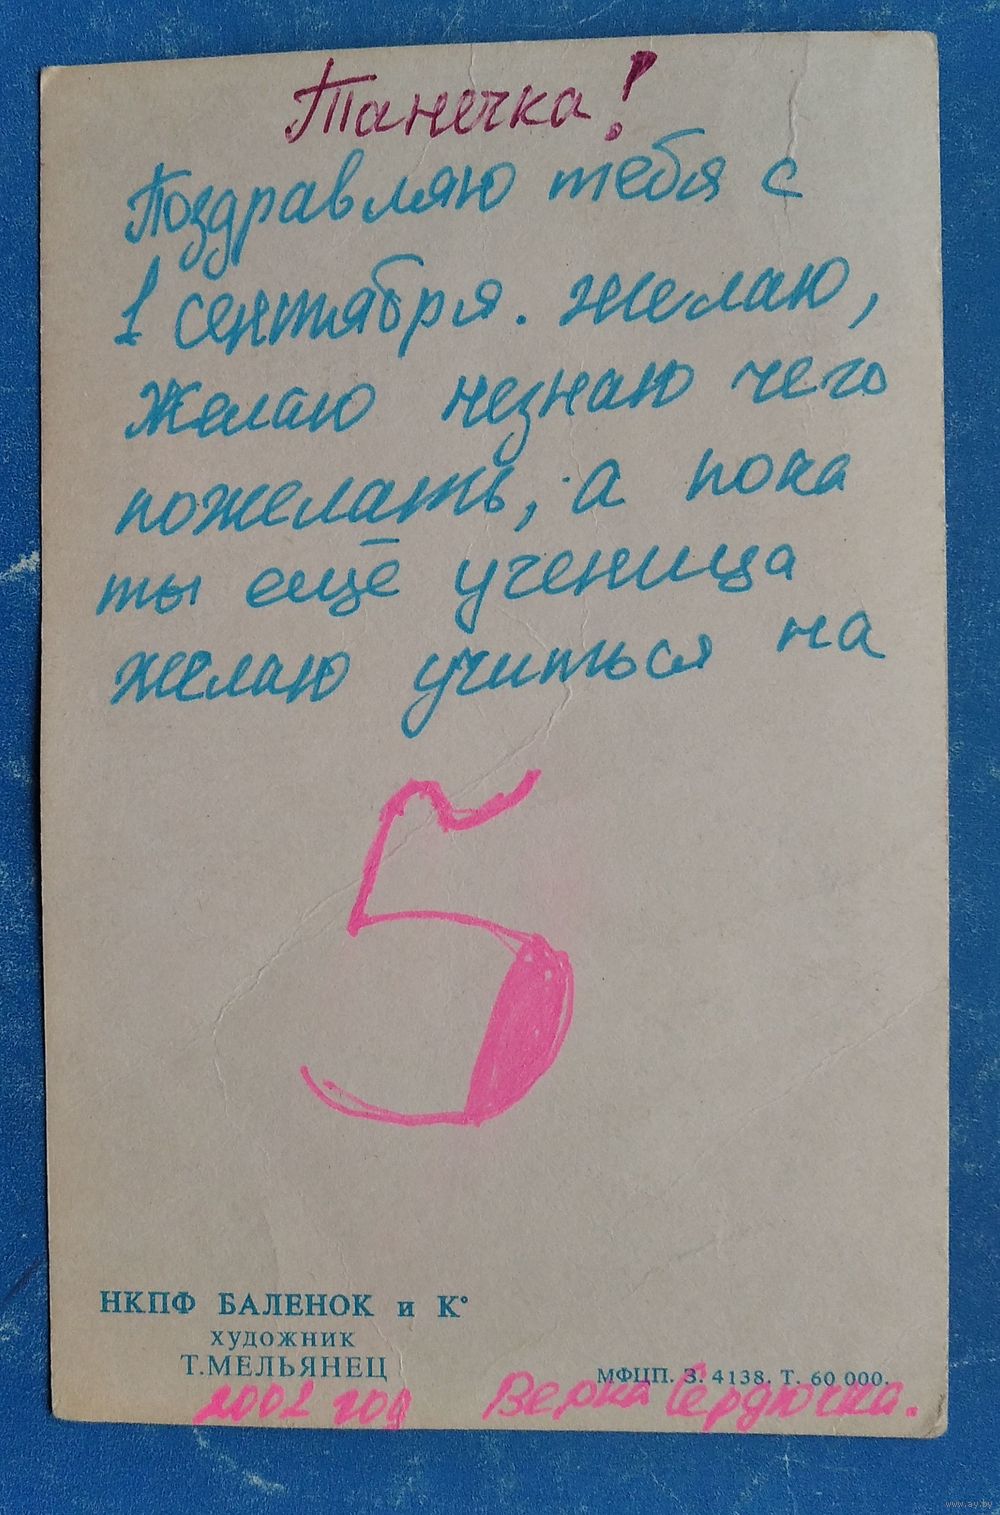 Танечка!
Поздравляю тебя с
1 сентября. Желаю,
Желаю незнаю чего
пожелать, а пока
ты ещё ученица
желаю учиться на
5
НКПФ БАЛЕНОК и К°
художник
Т.МЕЛЬЯНЕЦ
МФЦП. З. 4138. Т. 60 000.
2002 год Верка Сердючка.
www.ay.by